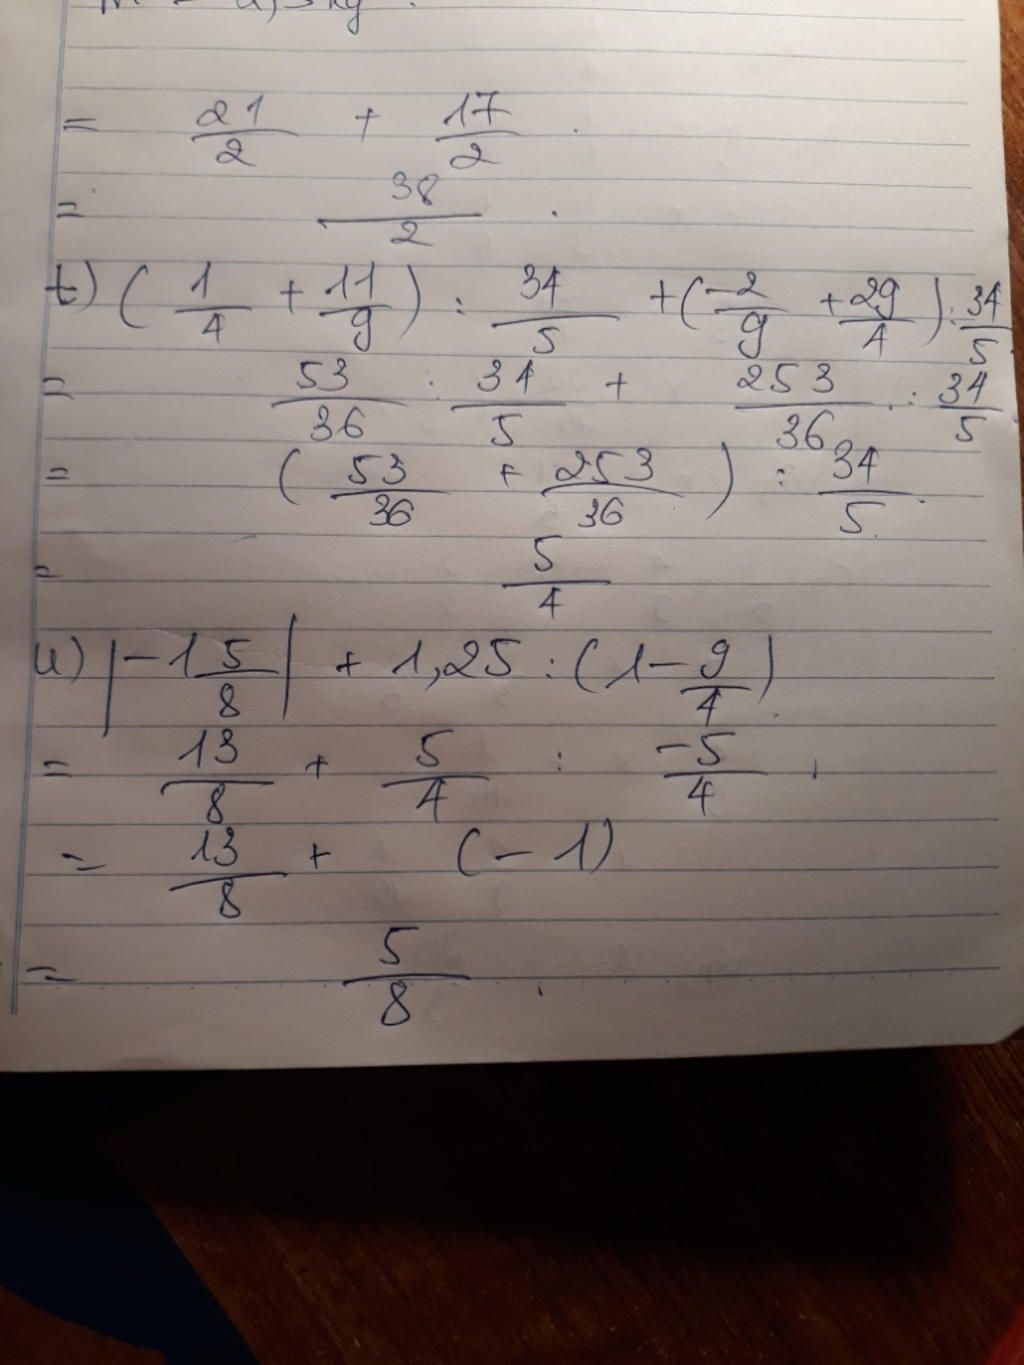 = 21/2 + 17/2 .
= 38/2 .
t) ( 1/4 + 11/9 ) : 34/5 + ( -2/9 + 29/4 ) : 34/5
= 53/36 : 34/5 + 253/36 : 34/5
= ( 53/36 + 253/36 ) : 34/5 .
= 5/4
u) | -1 5/8 | + 1,25 : ( 1 - 9/4 ) .
= 13/8 + 5/4 : -5/4 .
= 13/8 + ( - 1 )
= 5/8 .